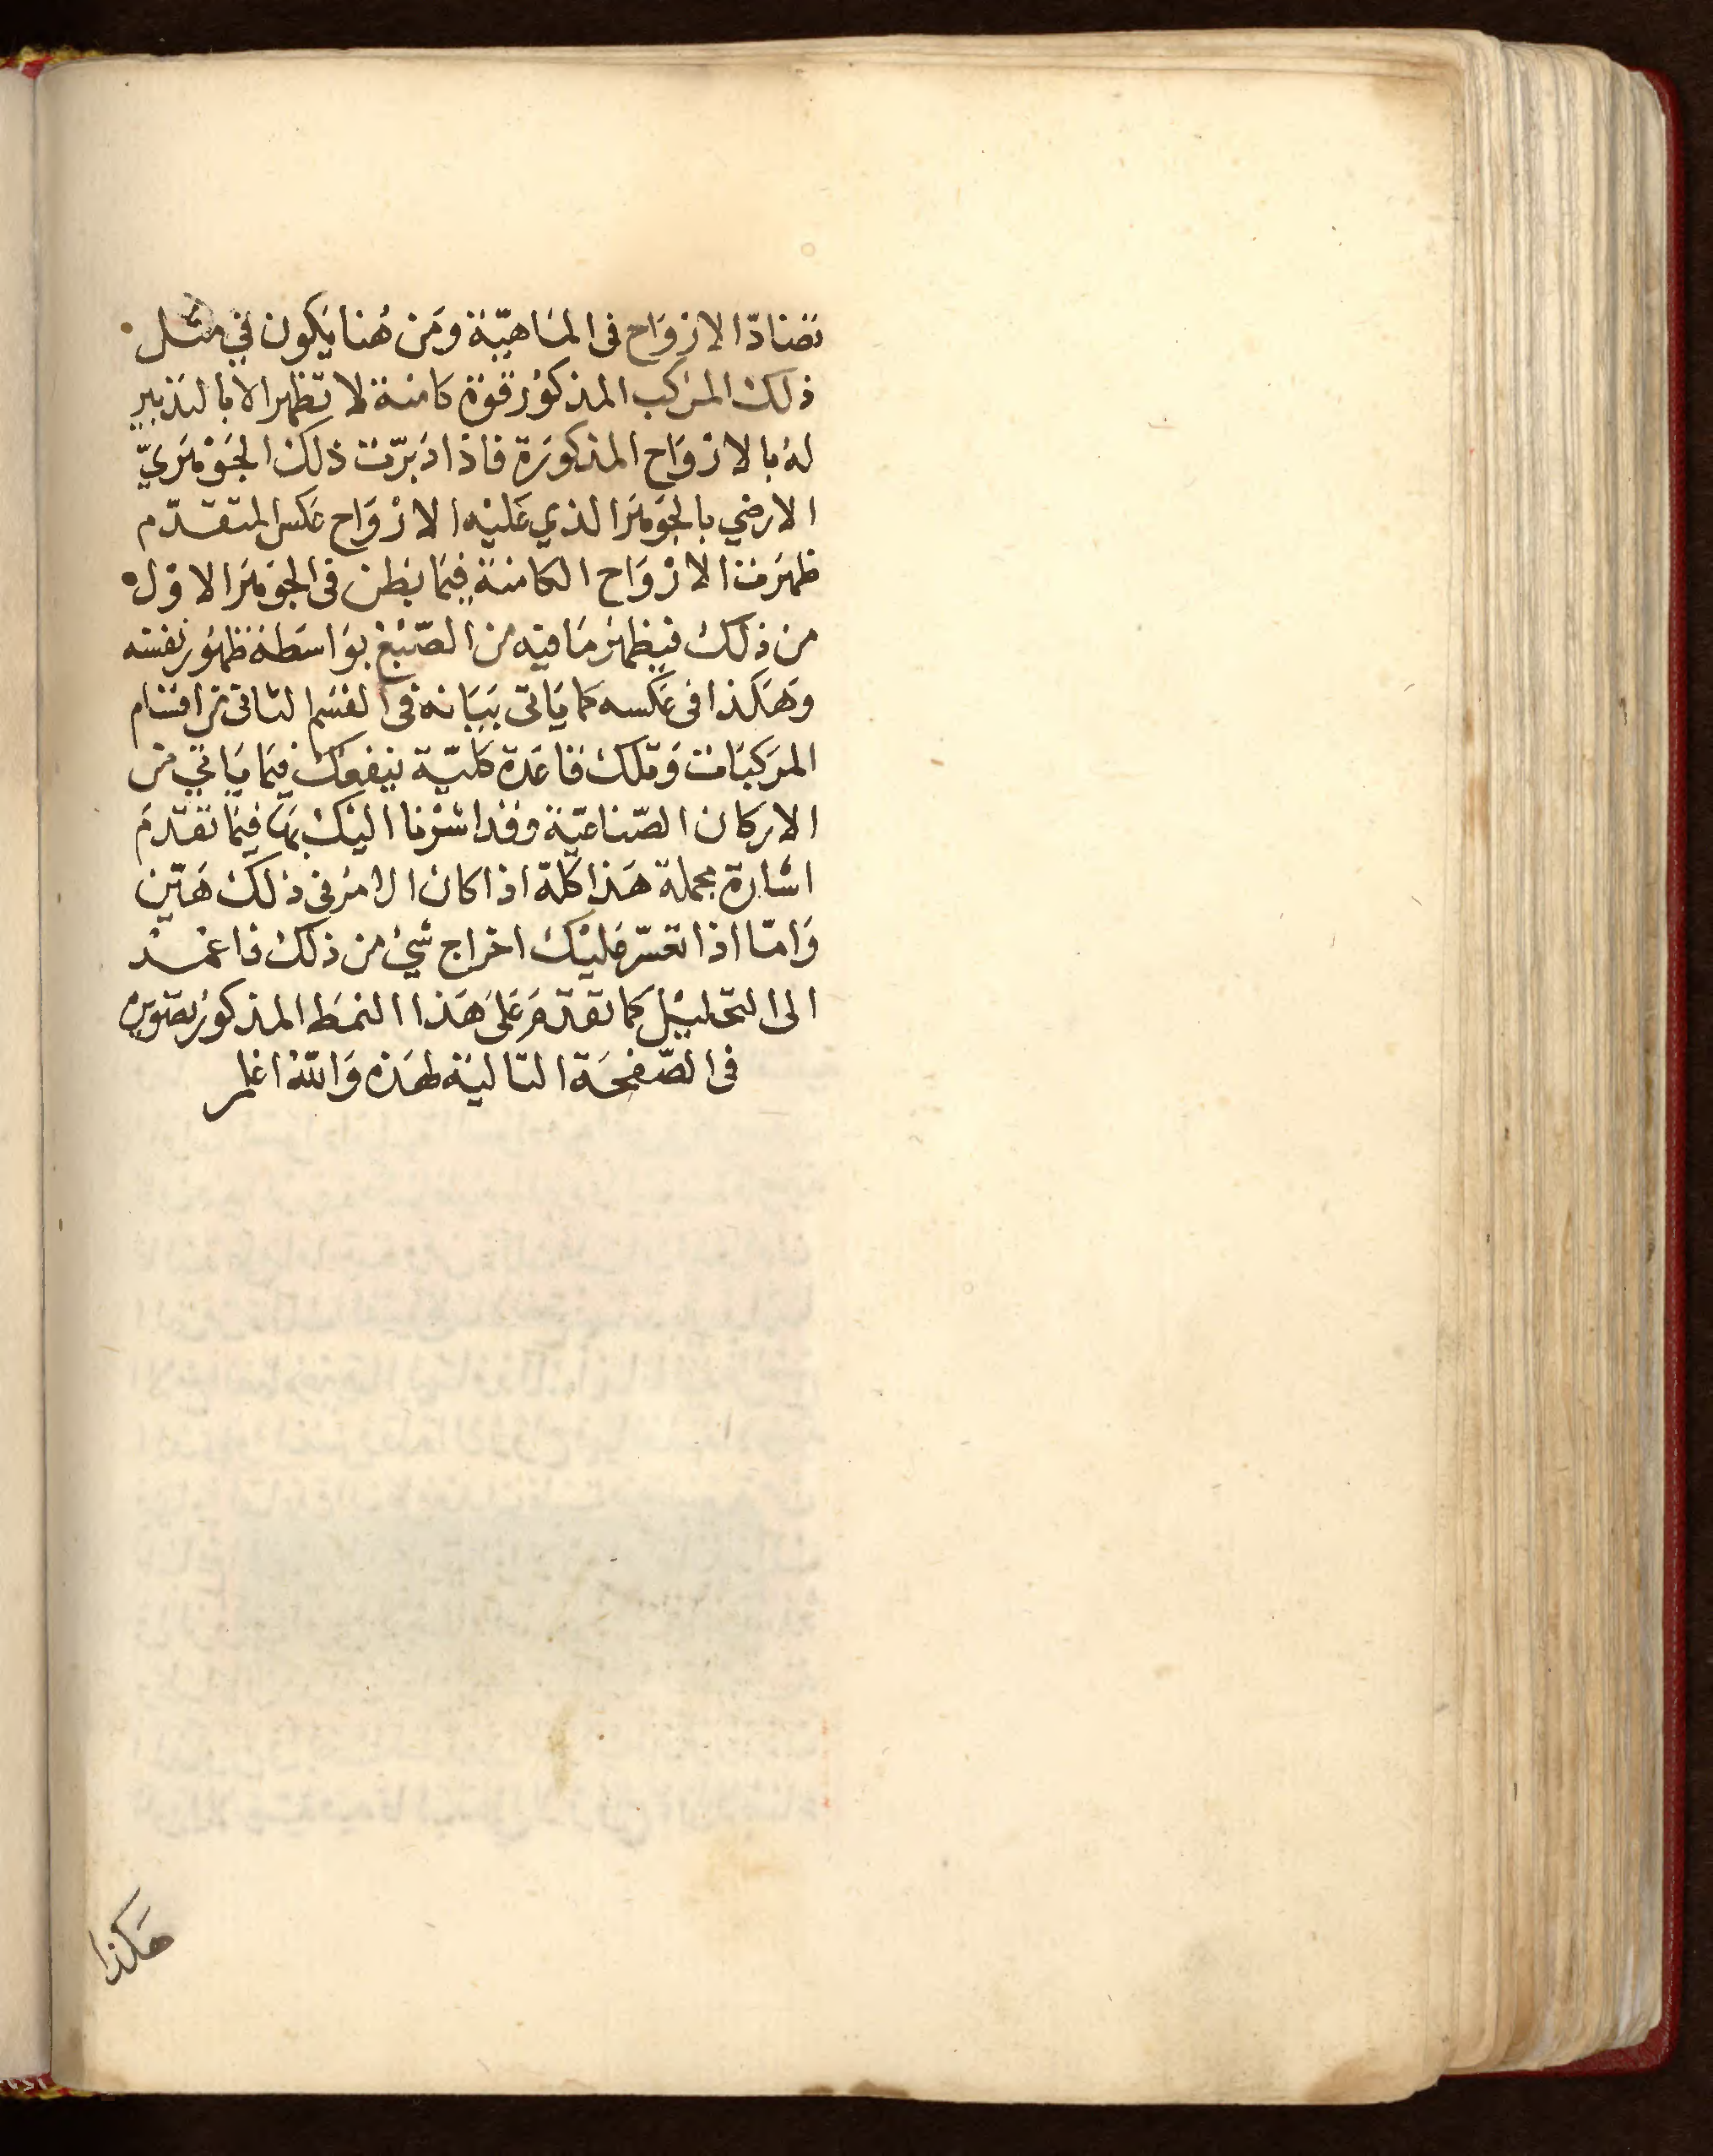 تضادّ الارْوَاح فى المَاهيّة ومَن هُنا يَكون في مثل
ذلك المرَكب المذكوُر قوّة كامنة لا تظهر الا بالتدبير
لهُ بالارْوَاح المذكورَة فاذا دَبّرت ذلك الجَوْهَريّ
الارضي بالجَوهَر الذي عَليْه الارْوَاح عَكس المتقدّم
ظهرَت الارْوَاح الكامنة فيمَا بَطن فى الجَوهَر الاوّل
من ذلكَ فيظهرُ مَا فيْه من الصّبْغ بوَاسَطة ظهُور نفسه
وَهَكذا فى عَكسه كمَا يَاتى بَيَانه فى القسْم الثانى من اقسَام
المرَكبَات وَتلك قاعَدة كليّة ينفعك فيمَا يَاتي من
الاركان الصّناعيّة وقد اشرْنا اليْك بهَا فيمَا تقدّمَ
اشارة مجملة هَذا كلهّ اذا كان الامرُ فى ذلك هَيّن
وَامّا اذا تعسّر عَليْك اخراج شيْ من ذلك فاعمد
الى التحليْل كما تقدّم عَلى هَذا النمَط المذكور بصّويره
فى الصّفحَة التاليَة لهَذه وَاللّهُ اعْلم
هَكذا